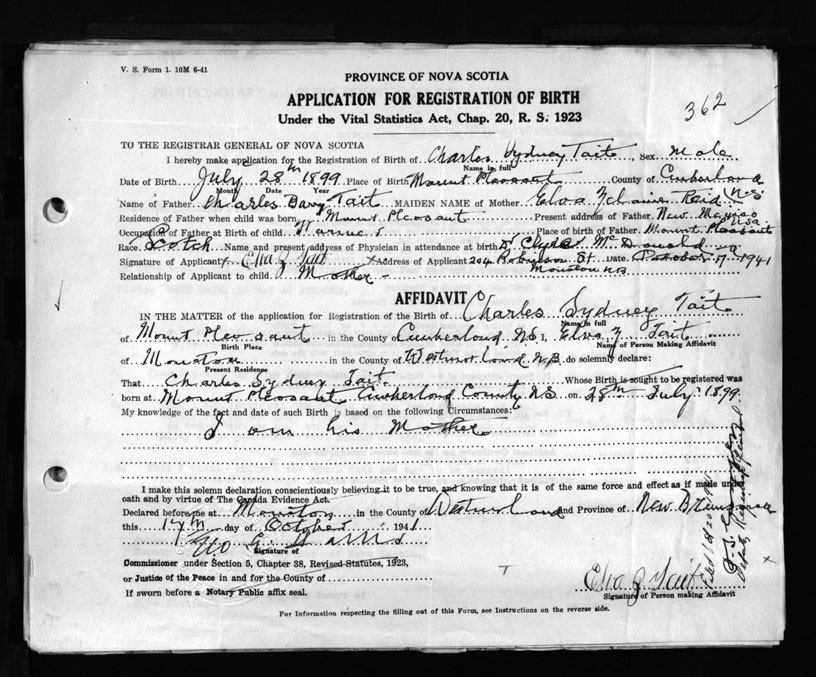 V. S. Form 1. 10M 6-41
PROVINCE OF NOVA SCOTIA
APPLICATION FOR REGISTRATION OF BIRTH
362
Under the Vital Statistics Act, Chap. 20, R. S. 1923
TO THE REGISTRAR GENERAL OF NOVA SCOTIA
I hereby make application for the Registration of Birth of Charles Sydney Tait, Sex Male
Name in full
Date of Birth July 28th 1899 Place of Birth Mount Pleasant County of Cumberland
Month Date Year
Name of Father Charles Tait MAIDEN NAME of Mother Elva Reid
Residence of Father when child was born Mount Pleasant Present address of Father New Mexico USA
Occupation of Father at Birth of child Farmer Place of birth of Father Mount Pleasant
Race Scotch Name and present address of Physician in attendance at birth Dr Clyde McDonald
Signature of Applicant Elva Z Tait Address of Applicant 204 Robinson St. Date October 17 1941
Relationship of Applicant to child Mother Moncton NB
AFFIDAVIT
IN THE MATTER of the application for Registration of the Birth of Charles Sydney Tait
Name in full
of Mount Pleasant in the County of Cumberland NS I, Elva Z. Tait
Birth Place Name of Person Making Affidavit
of Moncton in the County of Westmorland N.B. do solemnly declare:
Present Residence
That Charles Sydney Tait Whose Birth is sought to be registered was
born at Mount Pleasant Cumberland County NS on 28th July 1899
My knowledge of the fact and date of such Birth is based on the following Circumstances:
I am his Mother
I make this solemn declaration conscientiously believing it to be true, and knowing that it is of the same force and effect as if made under
oath and by virtue of The Canada Evidence Act.
Declared before me at Moncton in the County of Westmorland and Province of New Brunswick
this 17th day of October 1941
Signature of
Commissioner under Section 5, Chapter 38, Revised Statutes, 1923,
or Justice of the Peace in and for the County of
If sworn before a Notary Public affix seal.
Elva Z Tait
Signature of Person making Affidavit
For Information respecting the filling out of this Form, see Instructions on the reverse side.